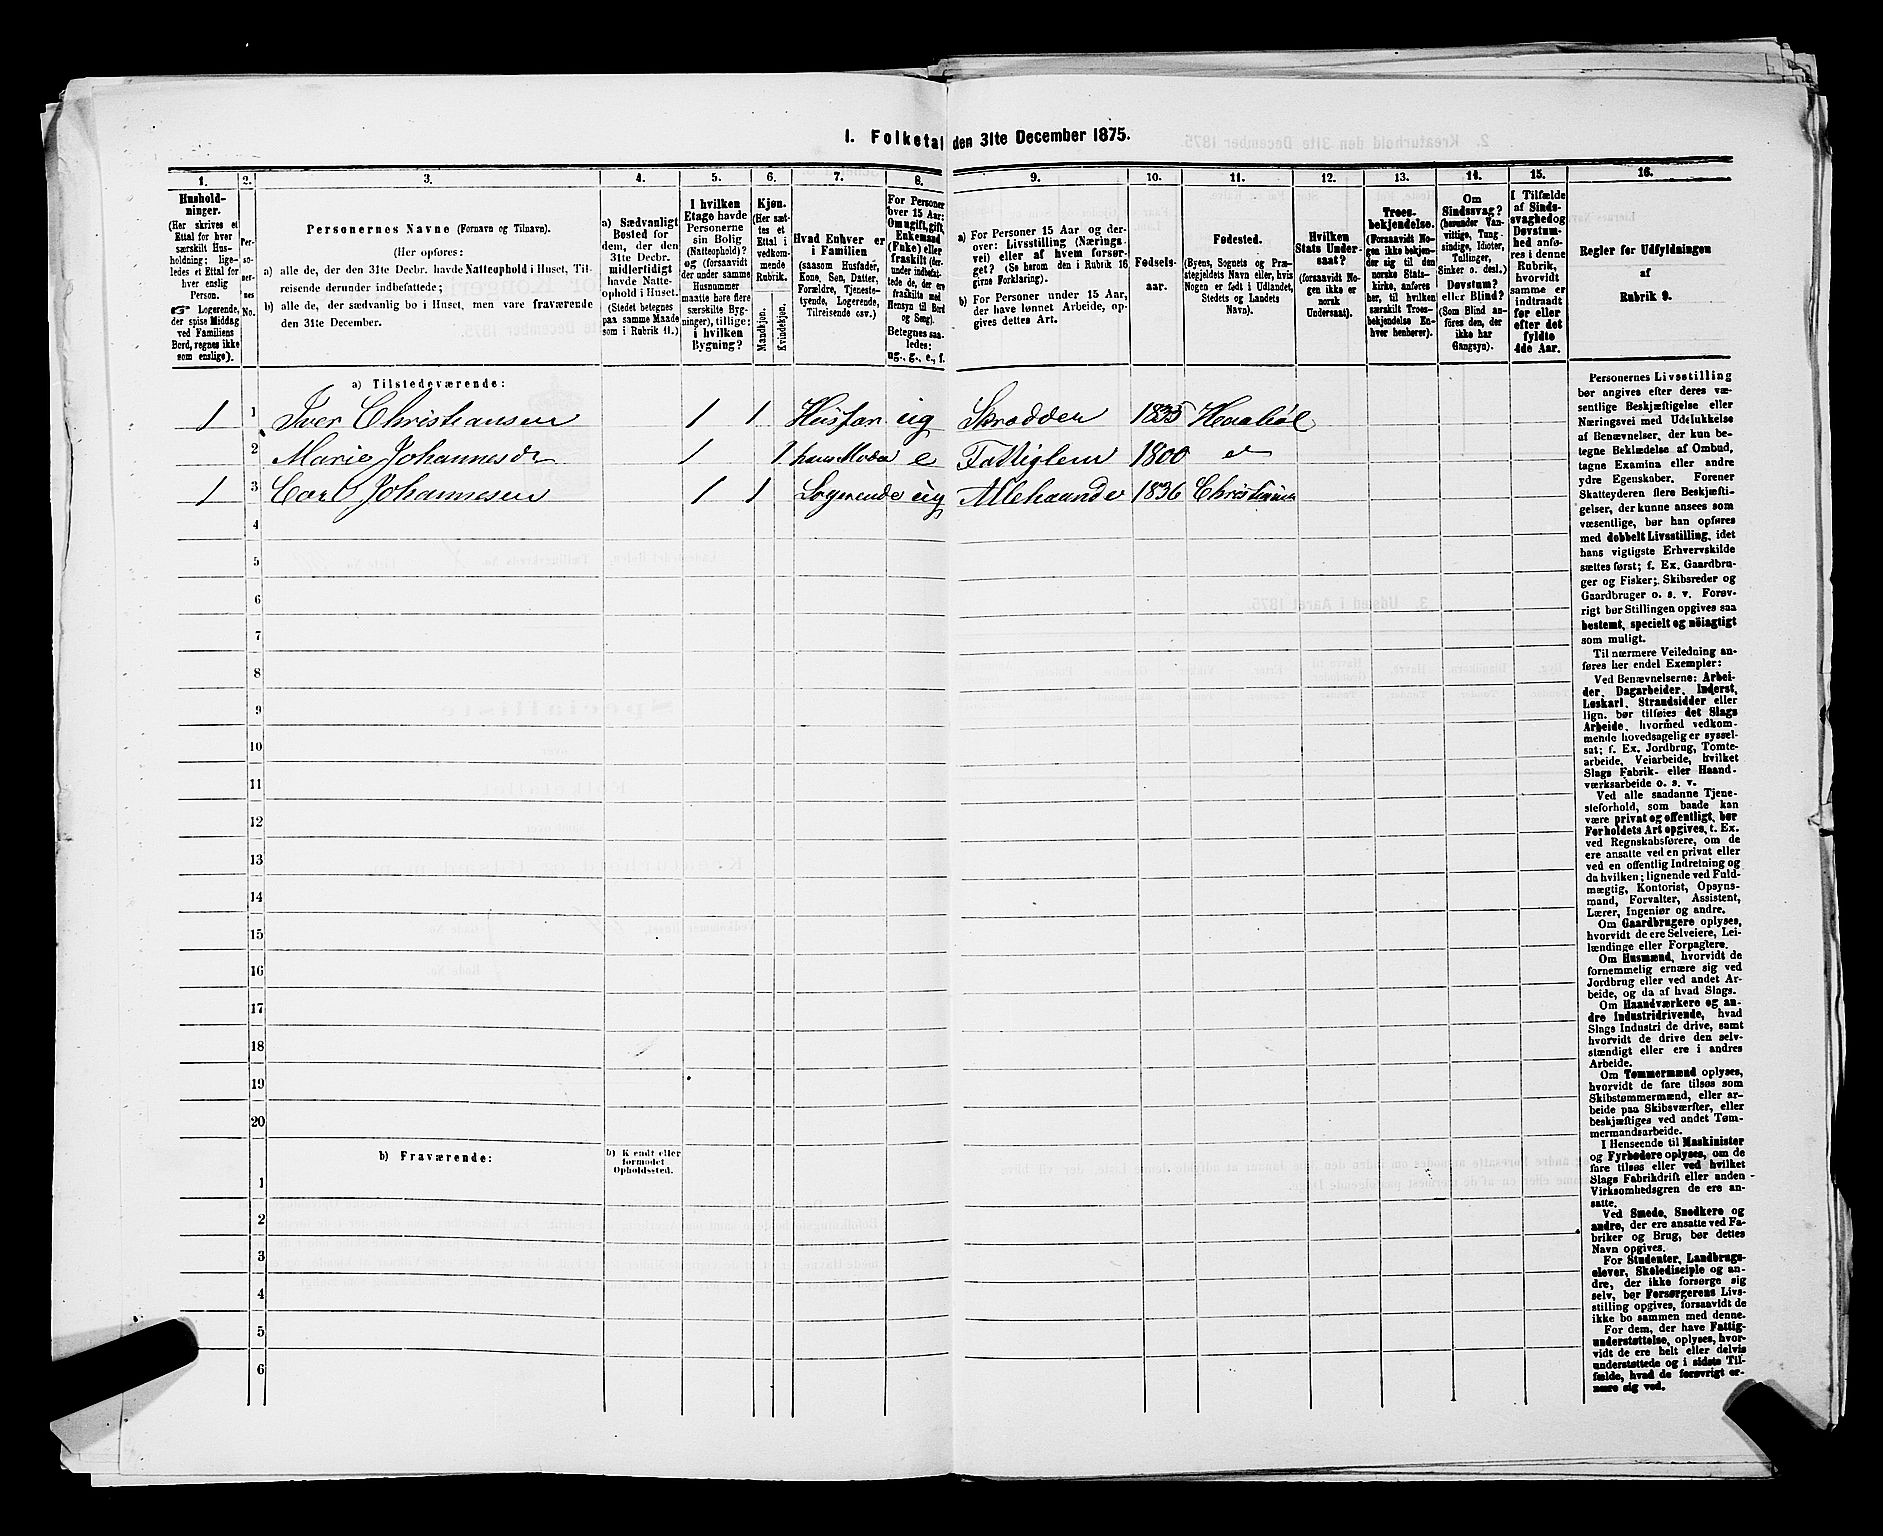 1. Folketal den 31te December 1875.
1. 2. 3. 4. 5. 6. 7. 8. 9. 10. 11. 12. 13. 14. 15. 16.
Hushold-
ninger.
(Her skrives et
Ettal for hver
særskilt Hus-
holdning; lige-
ledes et Ettal for
hver enslig
Person.
☞ Logerende,
der spise Middag
ved Familiens
Bord, regnes ikke
som enslige).
Per-
so-
ner-
nes
No.
Personernes Navne (Fornavn og Tilnavn).
(Her opføres:
a) alle de, der den 31te Decbr. havde Natteophold i Huset, Til-
reisende derunder indbefattede;
b) alle de, der sædvanlig bo i Huset, men vare fraværende
den 31te December.
a) Sædvanligt
Bosted for
dem, der den
31te Decbr.
midlertidigt
havde Natte-
ophold i Huset.
(Stedet betegnes
paa samme Maade
som i Rubrik 11.)
I hvilken
Etage havde
Personerne
sin Bolig
(Natteophold)?
og (forsaavidt
der under samme
Husnummer
maatte høre flere
særskilte Byg-
ninger), tillige:
i hvilken
Bygning?
Kjøn.
(Her sæt-
tes et
Ettal i
vedkom-
mende
Rubrik.
Mandkjøn.
Kvindekjøn.
Hvad Enhver er
i Familien
(saasom Husfader,
Kone, Søn, Datter,
Forældre, Tjeneste-
tyende, Logerende,
Tilreisende osv.)
For Personer
over 15 Aar:
Om ugift, gift,
Enkemand
(Enke) eller
fraskilt (der-
under indbefat-
tede de, der ere
fraskilte med
Hensyn til Bord
og Seng).
Betegnes saa-
ledes:
ug., g., e., f.
a) For Personer 15 Aar og der-
over: Livsstilling (Nærings-
vei) eller af hvem forsør-
get? (Se herom den i Rubrik 16
givne Forklaring).
b) For Personer under 15 Aar,
der have lønnet Arbeide, op-
gives dettes Art.
Fødsels-
aar.
Fødested.
(Byens, Sognets og Præ-
stegjeldets Navn eller, hvis
Nogen er født i Udlandet,
Stedets og Landets
Navn).
Hvilken
Stats Under-
saat?
(forsaavidt No-
gen ikke er
norsk
Undersaat).
Troes-
bekjendelse.
(Forsaavidt No-
gen ikke bekjen-
der sig til den
norske Stats-
kirke, anføres
her, til hvilken
særskilt Troes-
bekjendelse En-
hver henhører).
Om
Sindssvag?
(herunder Van-
vittige, Tung-
sindige, Idioter,
Tullinger,
Sinker o. desl.)
Døvstum?
eller Blind?
(Som Blind an-
føres den, der
ikke har
Gangsyn).
I Tilfælde
af Sinds-
svaghed og
Døvstum-
hed anfø-
res i denne
Rubrik,
hvorvidt
samme er
indtraadt
før eller
efter det
fyldte
4de Aar.
Regler for Udfyldningen
af
Rubrik 9.
a) Tilstedeværende:
1 1 Iver Christiansen 1 1 Husfar ug Skrædder 1835 Haabøl
2 Marie Johannesdr 1 1 hans Moder e Fattiglem 1800 do
1 3 Carl Johannesen 1 1 Logerende ug Allehaande 1836 Christiania
4
5
6
7
8
9
10
11
12
13
14
15
16
17
18
19
20
b) Fraværende:
b) Kjendt eller
formodet
Opholdssted.
1
2
3
4
5
6
Personernes Livsstilling
bør angives efter deres væ-
sentlige Beskjæftigelse eller
Næringsvei med Udelukkelse
af Benævnelser, der kun be-
tegne Beklædelse af Ombud,
tagne Examina eller andre
ydre Egenskaber. Forener
Skatteyderen flere Beskjæfti-
gelser, der kunne ansees som
væsentlige, bør han opføres
med dobbelt Livsstilling, idet
hans vigtigste Erhvervskilde
sættes først; f. Ex. Gaardbru-
ger og Fisker; Skibsreder og
Gaardbruger o. s. v. Forøv-
rigt bør Stillingen opgives saa
bestemt, specielt og nøiagtigt
som muligt.
Til nærmere Veiledning an-
føres her endel Exempler:
Ved Benævnelserne: Arbei-
der, Dagarbeider, Inderst,
Løskarl, Strandsidder eller
lign. bør tilføies det Slags
Arbeide, hvormed vedkom-
mende hovedsagelig er syssel-
sat; f. Ex. Jordbrug, Tomte-
arbeide, Veiarbeide, hvilket
Slags Fabrik- eller Haand-
værksarbeide o. s. v.
Ved alle saadanne Tjene-
steforhold, som baade kan
være privat og offentligt, bør
Forholdets Art opgives, t. Ex.
ved Regnskabsførere, om de
ere ansatte ved en privat eller
ved en offentlig Indretning og
da hvilken; lignende ved Fuld-
mægtig, Kontorist, Opsyns-
mand, Forvalter, Assistent,
Lærer, Ingeniør og andre.
Om Gaardbrugere oplyses,
hvorvidt de ere Selveiere, Lei-
lændinge eller Forpagtere.
Om Husmænd, hvorvidt de
fornemmelig ernære sig ved
Jordbrug eller ved andet Ar-
beide, og da af hvad Slags.
Om Haandværkere og an-
dre Industridrivende, hvad
Slags Industri de drive, samt
hvorvidt de drive den selv-
stændigt eller ere i andres
Arbeide.
Om Tømmermænd oplyses,
hvorvidt de fare tilsøs som
Skibstømmermænd, eller ar-
beide paa Skibsværfter, eller
beskjæftiges ved andet Tøm-
mermandsarbeide.
I Henseende til Maskinister
og Fyrbødere oplyses, om de
fare tilsøs eller ved hvilket
Slags Fabrikdrift eller anden
Virksomhedsgren de ere an-
satte.
Ved Smede, Snedkere og
andre, der ere ansatte ved Fa-
briker og Brug, bør dettes
Navn opgives.
For Studenter, Landbrugs-
elever, Skoledisciple og an-
dre, der ikke forsørge sig
selv, bør Forsørgerens Livs-
stilling opgives, forsaavidt de
ikke bo sammen med denne.
For dem, der have Fattig-
understøttelse, oplyses, hvor-
vidt de ere helt eller delvis
understøttede og i sidste Til-
fælde, hvad de forøvrigt er-
nære sig ved.